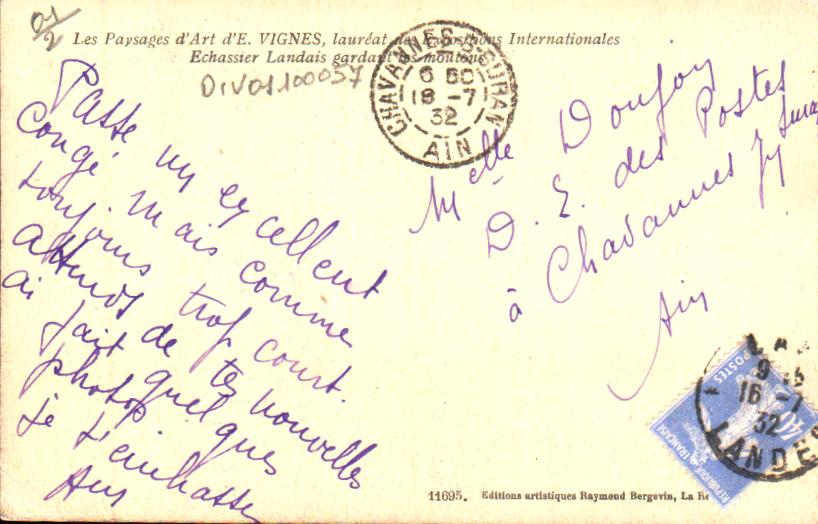 01/2
Les Paysages d'Art d'E. VIGNES, lauréat des Expositions Internationales
Echassier Landais gardant ses moutons
DIV01100057
CHAVANNES-S-SURAN
18 -7
32
AIN
Passe un excellent
congé. Mais comme
toujours trop court.
Attends de tes nouvelles
ai fait quelques
photos
Je t'embrasse
Melle
D. E. des Postes
à Chavannes
Ain
LAN
9
16 -7
32
LANDES
POSTES
40
REPUBLIQUE FRANÇAISE
11695. Editions artistiques Raymond Bergevin, La Ro